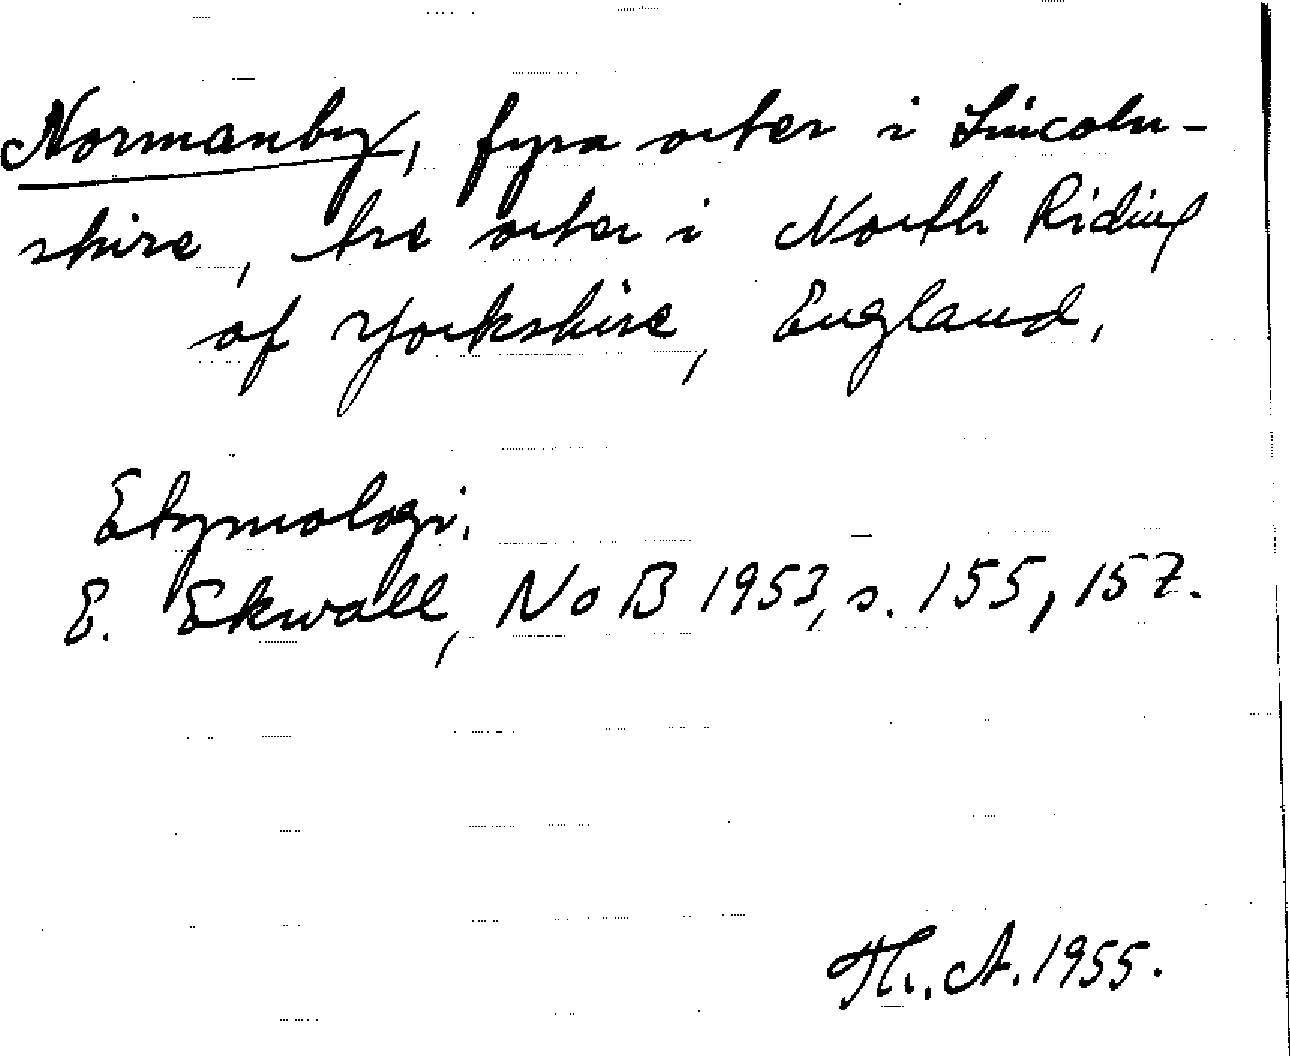 Normanby, fyra orter i Lincoln-
shire, tre orter i North Riding
of Yorkshire, England.
Etymologi.
E. Ekwall, NoB 1953, s. 155, 157.
Th. A. 1955.